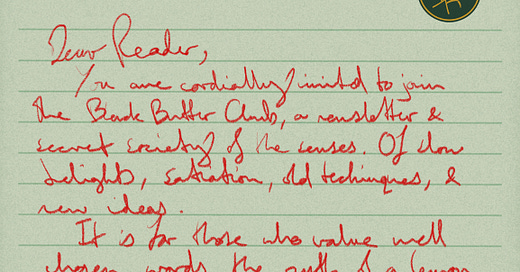 Dear Reader,
You are cordially invited to join
the Black Butter Club, a newsletter &
secret society of the senses. Of slow
delights, satiation, old techniques, &
new ideas.
It is for those who value well
chosen words, the of a lemon